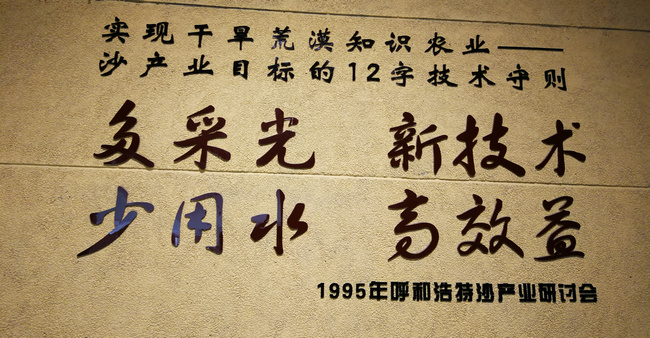 实现干旱荒漠知识农业——
沙产业目标的12字技术守则
多采光 新技术
少用水 高效益
1995年呼和浩特沙产业研讨会